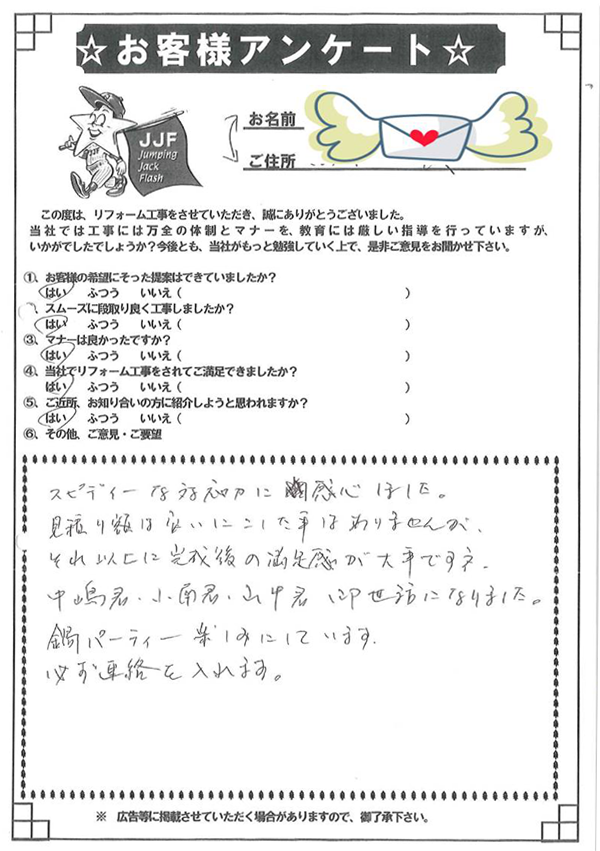 ☆お客様アンケート☆
JJF
Jumping
Jack
Flash
JJF
お名前
ご住所
この度は、リフォーム工事をさせていただき、誠にありがとうございました。
当社では工事には万全の体制とマナーを、教育には厳しい指導を行っていますが、
いかがでしたでしょうか?今後とも、当社がもっと勉強していく上で、是非ご意見をお聞かせ下さい。
①、お客様の希望にそった提案はできていましたか?
はい ふつう いいえ( )
、スムーズに段取り良く工事しましたか?
はい ふつう いいえ( )
③、マナーは良かったですか?
はい ふつう いいえ( )
④、当社でリフォーム工事をされてご満足できましたか?
はい ふつう いいえ( )
⑤、ご近所、お知り合いの方に紹介しようと思われますか?
はい ふつう いいえ( )
⑥、その他、ご意見・ご要望
スピディーな対応力に感心しました。
見積り額は良いにこした事はありませんが、
それ以上に完成後の満足感が大事ですネ、
中嶋君、小南君、山中君 御世話になりました。
鍋パーティー楽しみにしています。
必ず連絡を入れます。
※ 広告等に掲載させていただく場合がありますので、御了承下さい。